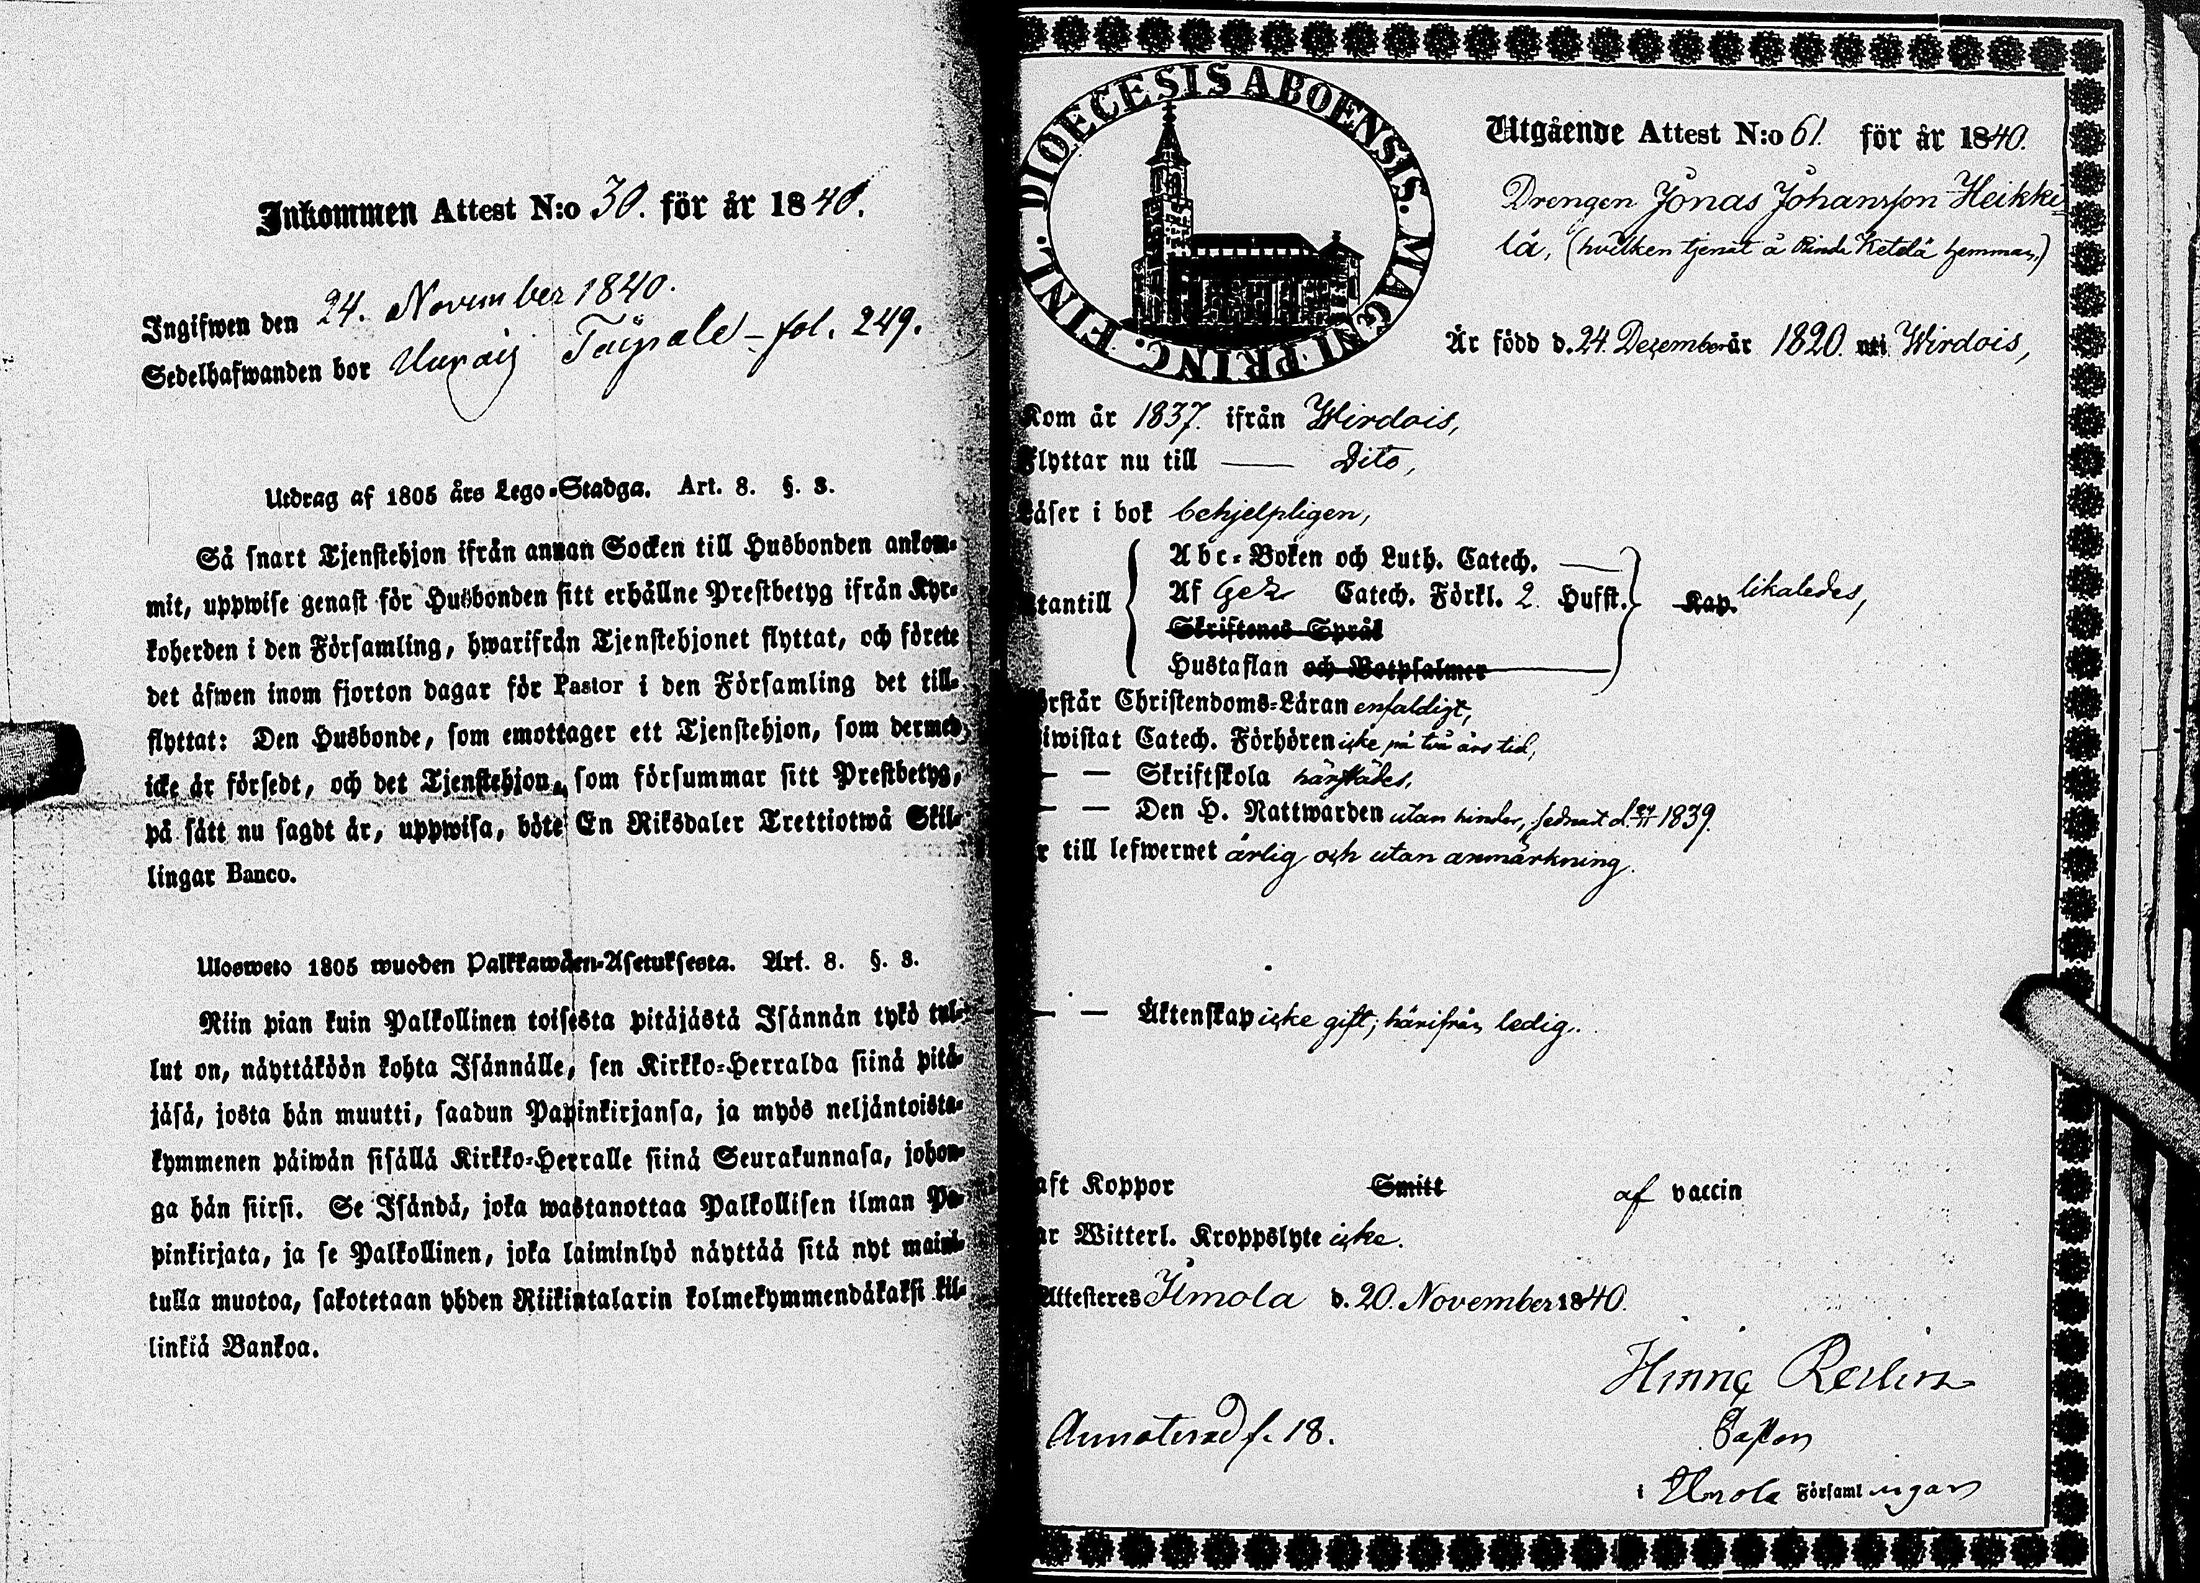 Inkommen Attest N:o 30. för år 1840.
Ingifwen den 24. November 1840.
Sedelhafwanden bor Taipale – fol. 249.
Utdrag af 1805 års Lego-Stadga. Art. 8. §. 3.
Så snart Tjenstehjon ifrån annan Socken till Husbonden ankom-
mit, uppwise genast för Husbonden sitt erhållne Prestbetyg ifrån Kyr-
koherden i den Församling, hwarifrån Tjenstehjonet flyttat, och förete
det äfwen inom fjorton dagar för Pastor i den Församling det till-
flyttat: Den Husbonde, som emottager ett Tjenstehjon, som dermed
icke är försedt, och det Tjenstehjon, som försummar sitt Prestbetyg,
på sätt nu sagdt är, uppwisa, böte En Riksdaler Trettiotwå Skil-
lingar Banco.
Ulosweto 1805 wuoden Palkkawäen-Asetuksesta. Art. 8. §. 3.
Niin pian kuin Palkollinen toisesta pitäjästä Isännän tykö tul-
lut on, näyttäköön kohta Isännälle, sen Kirkko-Herralda siinä pitä-
jäsä, josta hän muutti, saadun Papinkirjansa, ja myös neljäntoista-
kymmenen päiwän sisällä Kirkko-Herralle siinä Seurakunnasa, johon-
ga hän siirsi. Se Isändä, joka wastanottaa Palkollisen ilman Pa-
pinkirjata, ja se Palkollinen, joka laiminlyö näyttää sitä nyt maini-
tulla muotoa, sakotetaan yhden Riikintalarin kolmekymmendäkaksi kil-
linkiä Bankoa.
DIOECESIS ABOENSIS. MAGNI PRINC. FINL.
Utgående Attest N:o 61. för år 1840.
Drengen Jonas Johansson Heikki
lä, (hvilken tjenat å Rinda Ketelä hemman,)
Är född d. 24. December år 1820. uti Wirdois,
Kom år 1837. ifrån Wirdois,
Flyttar nu till — Dito,
Läser i bok behjelpligen,
Abc-Boken och Luth. Catech. —
Utantill Af Gez Catech. Förkl. 2 Hufst. Kap. likaledes,
Skriftenes Språk
Hustaflan och Botpsalmer
Förstår Christendoms-Läran enfaldigt,
Biwistat Catech. Förhören icke på två års tid,
— — Skriftskola härstädes,
— — Den H. Nattwarden utan hinder, sednast d. 24/11 1839.
Är till lefwernet ärlig och utan anmärkning.
— — Äktenskap icke gift; härifrån ledig.
Haft Koppor Smitt af vaccin
Har Witterl. Kroppslyte icke.
Attesteres Ilmola d. 20. November 1840.
Pastor
Annoterad f. 18.
i Ilmola Församlingar